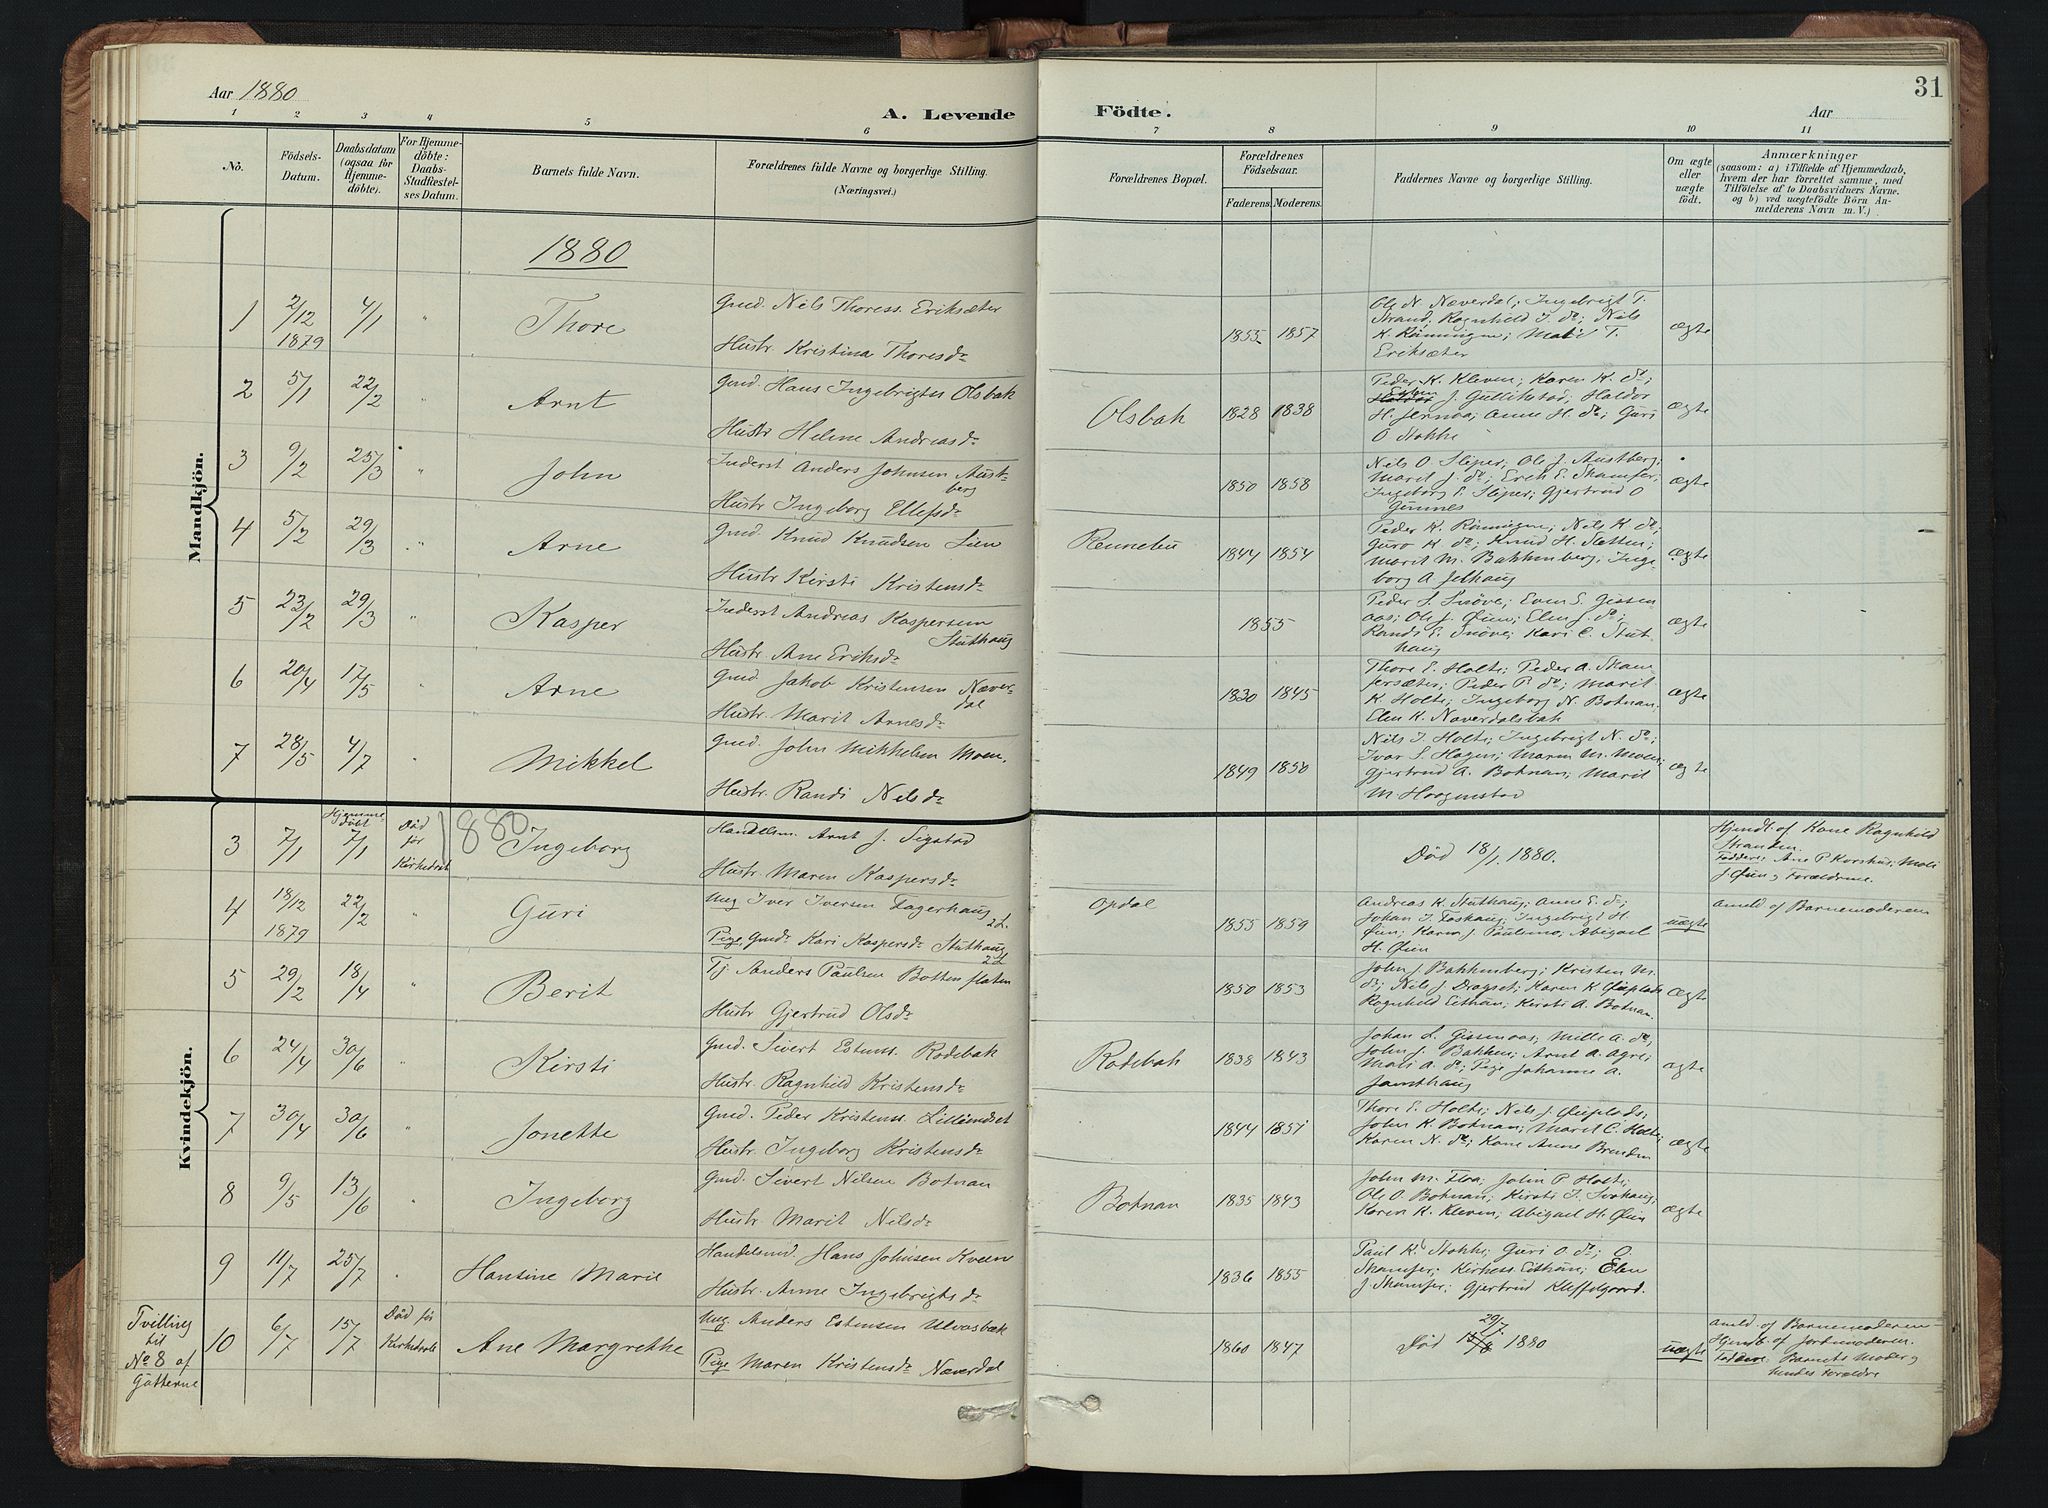 Aar 1880
A. Levende Födte.
Aar
31
1 2 3 4 5 6 7 8 9 10 11
No.
Födsels-
Datum.
Daabsdatum
(ogsaa for
Hjemme-
döbte).
For Hjemme-
döbte:
Daabs-
Stadfæstel-
ses Datum.
Barnets fulde Navn.
Forældrenes fulde Navne og borgerlige Stilling.
(Næringsvei.)
Forældrenes Bopæl.
Forældrenes
Födselsaar.
Faderens. Moderens.
Faddernes Navne og borgerlige Stilling.
Om ægte
eller
uægte
födt.
Anmærkninger
(saasom: a) i Tilfælde af Hjemmedaab,
hvem der har forrettet samme, med
Tilföielse af to Daabsvidners Navne.
og b) ved uægtefödte Börn An-
melderens Navn m. V.)
Mandkjön.
1880
1 2/12 1879 4/1 " Thore
Gmd. Nils Thoress. Eriksæter
Hustr. Kristina Thoresdr
1855 1857
Ole N. Næverdal; Ingebrigt T.
Strand; Ragnhild I. do; Nils
K. Rönningen; Mali T.
Eriksæter
ægte
2 5/1 22/2 " Arnt
Gmd. Hans Ingebrigts Olsbak
Hustr Helene Andreasdr
Olsbak 1828 1838
Peder K. Kleven; Karen K. do;
J. Gullikstad; Haldor
H. Jernaa; Anne H. do; Guri
O Stokke
ægte
3 9/2 25/3 " John
Inderst Anders Johnsen Aust-
berg
Hustr Ingeborg Ellefsdr
1850 1858
Nils O. Sliper; Ole J. Austberg;
Marit J. do; Erik E. Skamfer;
Ingeborg E. Sliper; Gjertrud O
Gunnes
ægte
4 5/2 29/3 " Arne
Gmd. Knud Knudsen Lien
Hustr Kirsti Kristensdr
Rennebu 1844 1854
Peder K. Rönningen; Nils K. do;
Guro K. do; Knud H. Sætten;
Marit M. Bakkenberg; Inge-
borg A.
ægte
5 23/2 29/3 " Kasper
Inderst Andreas Kaspersen
Stuthaug
Hustr. Ane Eriksdr
1855
Peder S. Snöve; Even E. Gisen-
aas; Ole J. Øien; Elen J. do;
Randi E. Snöve; Kari C. Stut-
haug
ægte
6 20/4 17/5 " Arne
Gmd. Jakob Kristensen Næver-
dal
Hustr. Marit Arnesdr
1830 1845
Thore E. Holte; Peder A. Skam-
fersæter; Peder P. do; Marit
K. Holte; Ingeborg N. Botnan.
Elen K. Næverdalsbak
ægte
7 28/5 4/7 " Mikkel
Gmd. John Mikkelsen Moen.
Hustr. Randi Nilsdr
1849 1850
Nils J. Holte; Ingebrigt N. do;
Ivar S. Hagen; Maren M. Moen;
Gjertrud A. Botnan; Marit
M. Haagenstad
ægte
Kvindekjön.
1880
3 7/1 Hjemme-
döbt
7/1 Död
før
Kirkedaab Ingeborg
Handelsm. Arnt J. Segstad
Hustr Maren Kaspersdr
Død 18/1 1880.
Hjmdt. af Kone Ragnhild
Stranden.
Faddere: Ane P. Korshus; Mali
J. Øien og Forældrene.
4 18/12 1879 22/2 " Guri
Ung Iver Iversen Fagerhaug
2L.
Pige Gmdr Kari Kaspersdr Stuthaug
2L
Opdal 1855 1859
Andreas K. Stuthaug; Anne E. do;
Johan I. Foshaug; Ingebrigt H.
Øien; Karen J. Paulsmo; Abigael
H. Øien
uægte
Anmeld. af Barnemoderen
5 29/2 18/4 " Berit
Tj Anders Paulsen Bottenslaten
Hustr Gjertrud Olsdr
1850 1853
John J. Bakkenberg; Kristen M.
do; Nils J. Dragset; Karen K Øieplads
Ragnhild Eithun; Kirsti A. Botnan.
ægte
6 24/4 30/6 " Kirsti
Gmd. Sivert Estenss. Rodebak
Hustr. Ragnhild Kristensdr
Rodebak 1838 1843
Johan L. Gissenaas; Mille A. do;
John J. Bakken; Arnt A. Agre;
Mali A. do; Pige Johanne A.
Jamthaug
ægte
7 30/4 30/6 " Jonette
Gmd. Peder Kristenss. Lillemdset
Hustr. Ingeborg Kristensdr
1844 1851
Thore E. Holte; Nils J. Øieplads;
John K. Botnan; Marit C. Holte;
Karen N. do; Kone Anne Brenden
ægte
8 9/5 13/6 " Ingeborg
Gmd. Sivert Nilsen Botnan
Hustr Marit Nilsdr
Botnan 1835 1843
John M. Floa; John P. Holte;
Ole O. Botnan; Kirsti I. Svohaug;
Karen K. Kleven; Abigael H. Øien
ægte
9 11/7 25/7 " Hansine Marie
Handelsmd. Hans Johnsen Kveen
Hustr. Anne Ingebrigtsdr
1836 1855
Paul K. Stokke; Guri O. do; O.
Skamfer; Kirkess. Eithun; Elen
J. Skamfer; Gjertrud Kleffelgaard.
Tvilling
til
No 8 af
Gutterne
10 6/7 15/7 Död før
Kirkedaab Ane Margrethe
Ung. Anders Estensen Ulvasbæk
Pige Maren Kristensdr Næverdal
1860 1847
29/7.
Død 15/8 1880
uægte
Anmeld. af Barnemoderen
Hjmdt. af Jordmoderen.
Faddere: Barnets Moder og
hendes Forældre